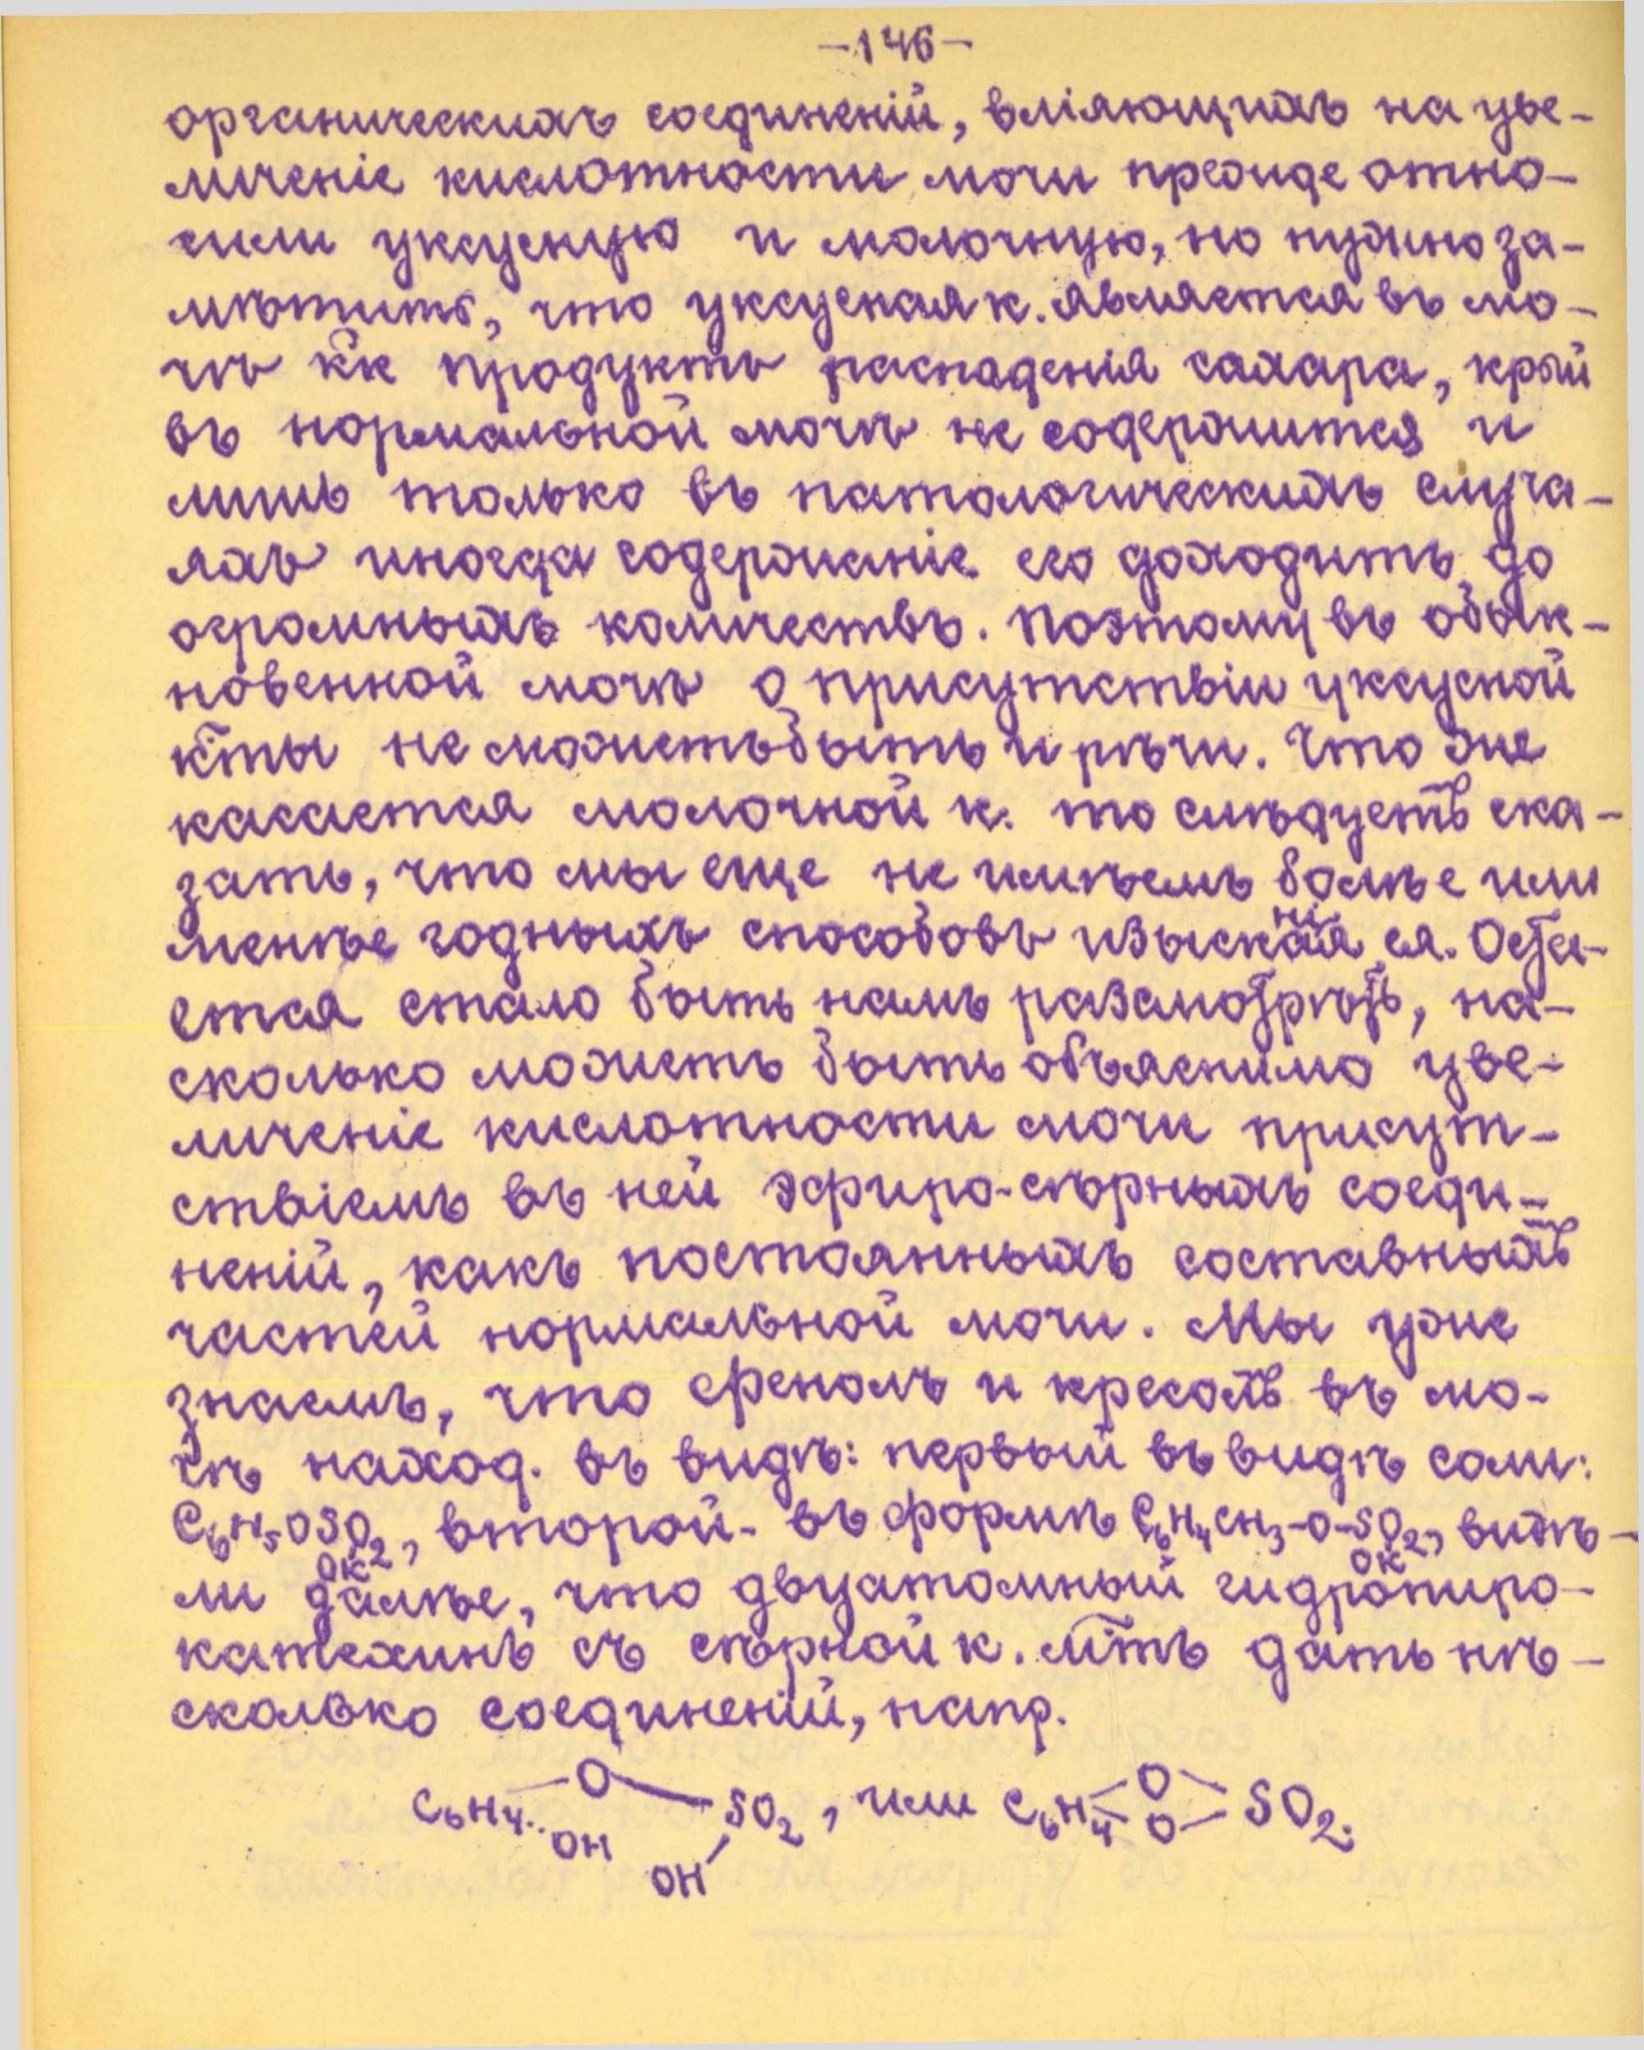 -146-
органическихъ соединеній, вліяющихъ на уве-
личеніе кислотности мочи прежде отно-
сили уксусную и молочную, но нужно за-
мѣтить, что уксусная к. является въ мо-
чѣ кк продуктъ распаденія сахара, крый
въ нормальной мочѣ не содержится и
лишь только въ патологическихъ случа-
яхъ иногда содержаніе его доходитъ до
огромныхъ количествъ. Поэтому въ обык-
новенной мочѣ о присутствіи уксусной
кты не можетъ быть и рѣчи. Что же
касается молочной к. то слѣдуетъ ска-
зать, что мы еще не имѣемъ болѣе или
менѣе годныхъ способовъ изысканія ея. Оста-
ется стало быть намъ разсмотрѣть, на-
сколько можетъ быть объяснимо уве-
личеніе кислотности мочи присут-
ствіемъ въ ней эфиро-сѣрныхъ соеди-
неній, какъ постоянныхъ составныхъ
частей нормальной мочи. Мы уже
знаемъ, что фенолъ и крезолъ въ мо-
чѣ наход. въ видѣ: первый въ видѣ соли:
C₆H₅OSO₂, второй- въ формѣ C₆H₄CH₃-O-SO₂, видѣ-
OK OK
ли далѣе, что двуатомный гидропиро-
катехинъ съ сѣрной к. мтъ дать нѣ-
сколько соединеній, напр.
C₆H₄ O OH SO₂ OH, или C₆H₄ O O SO₂.